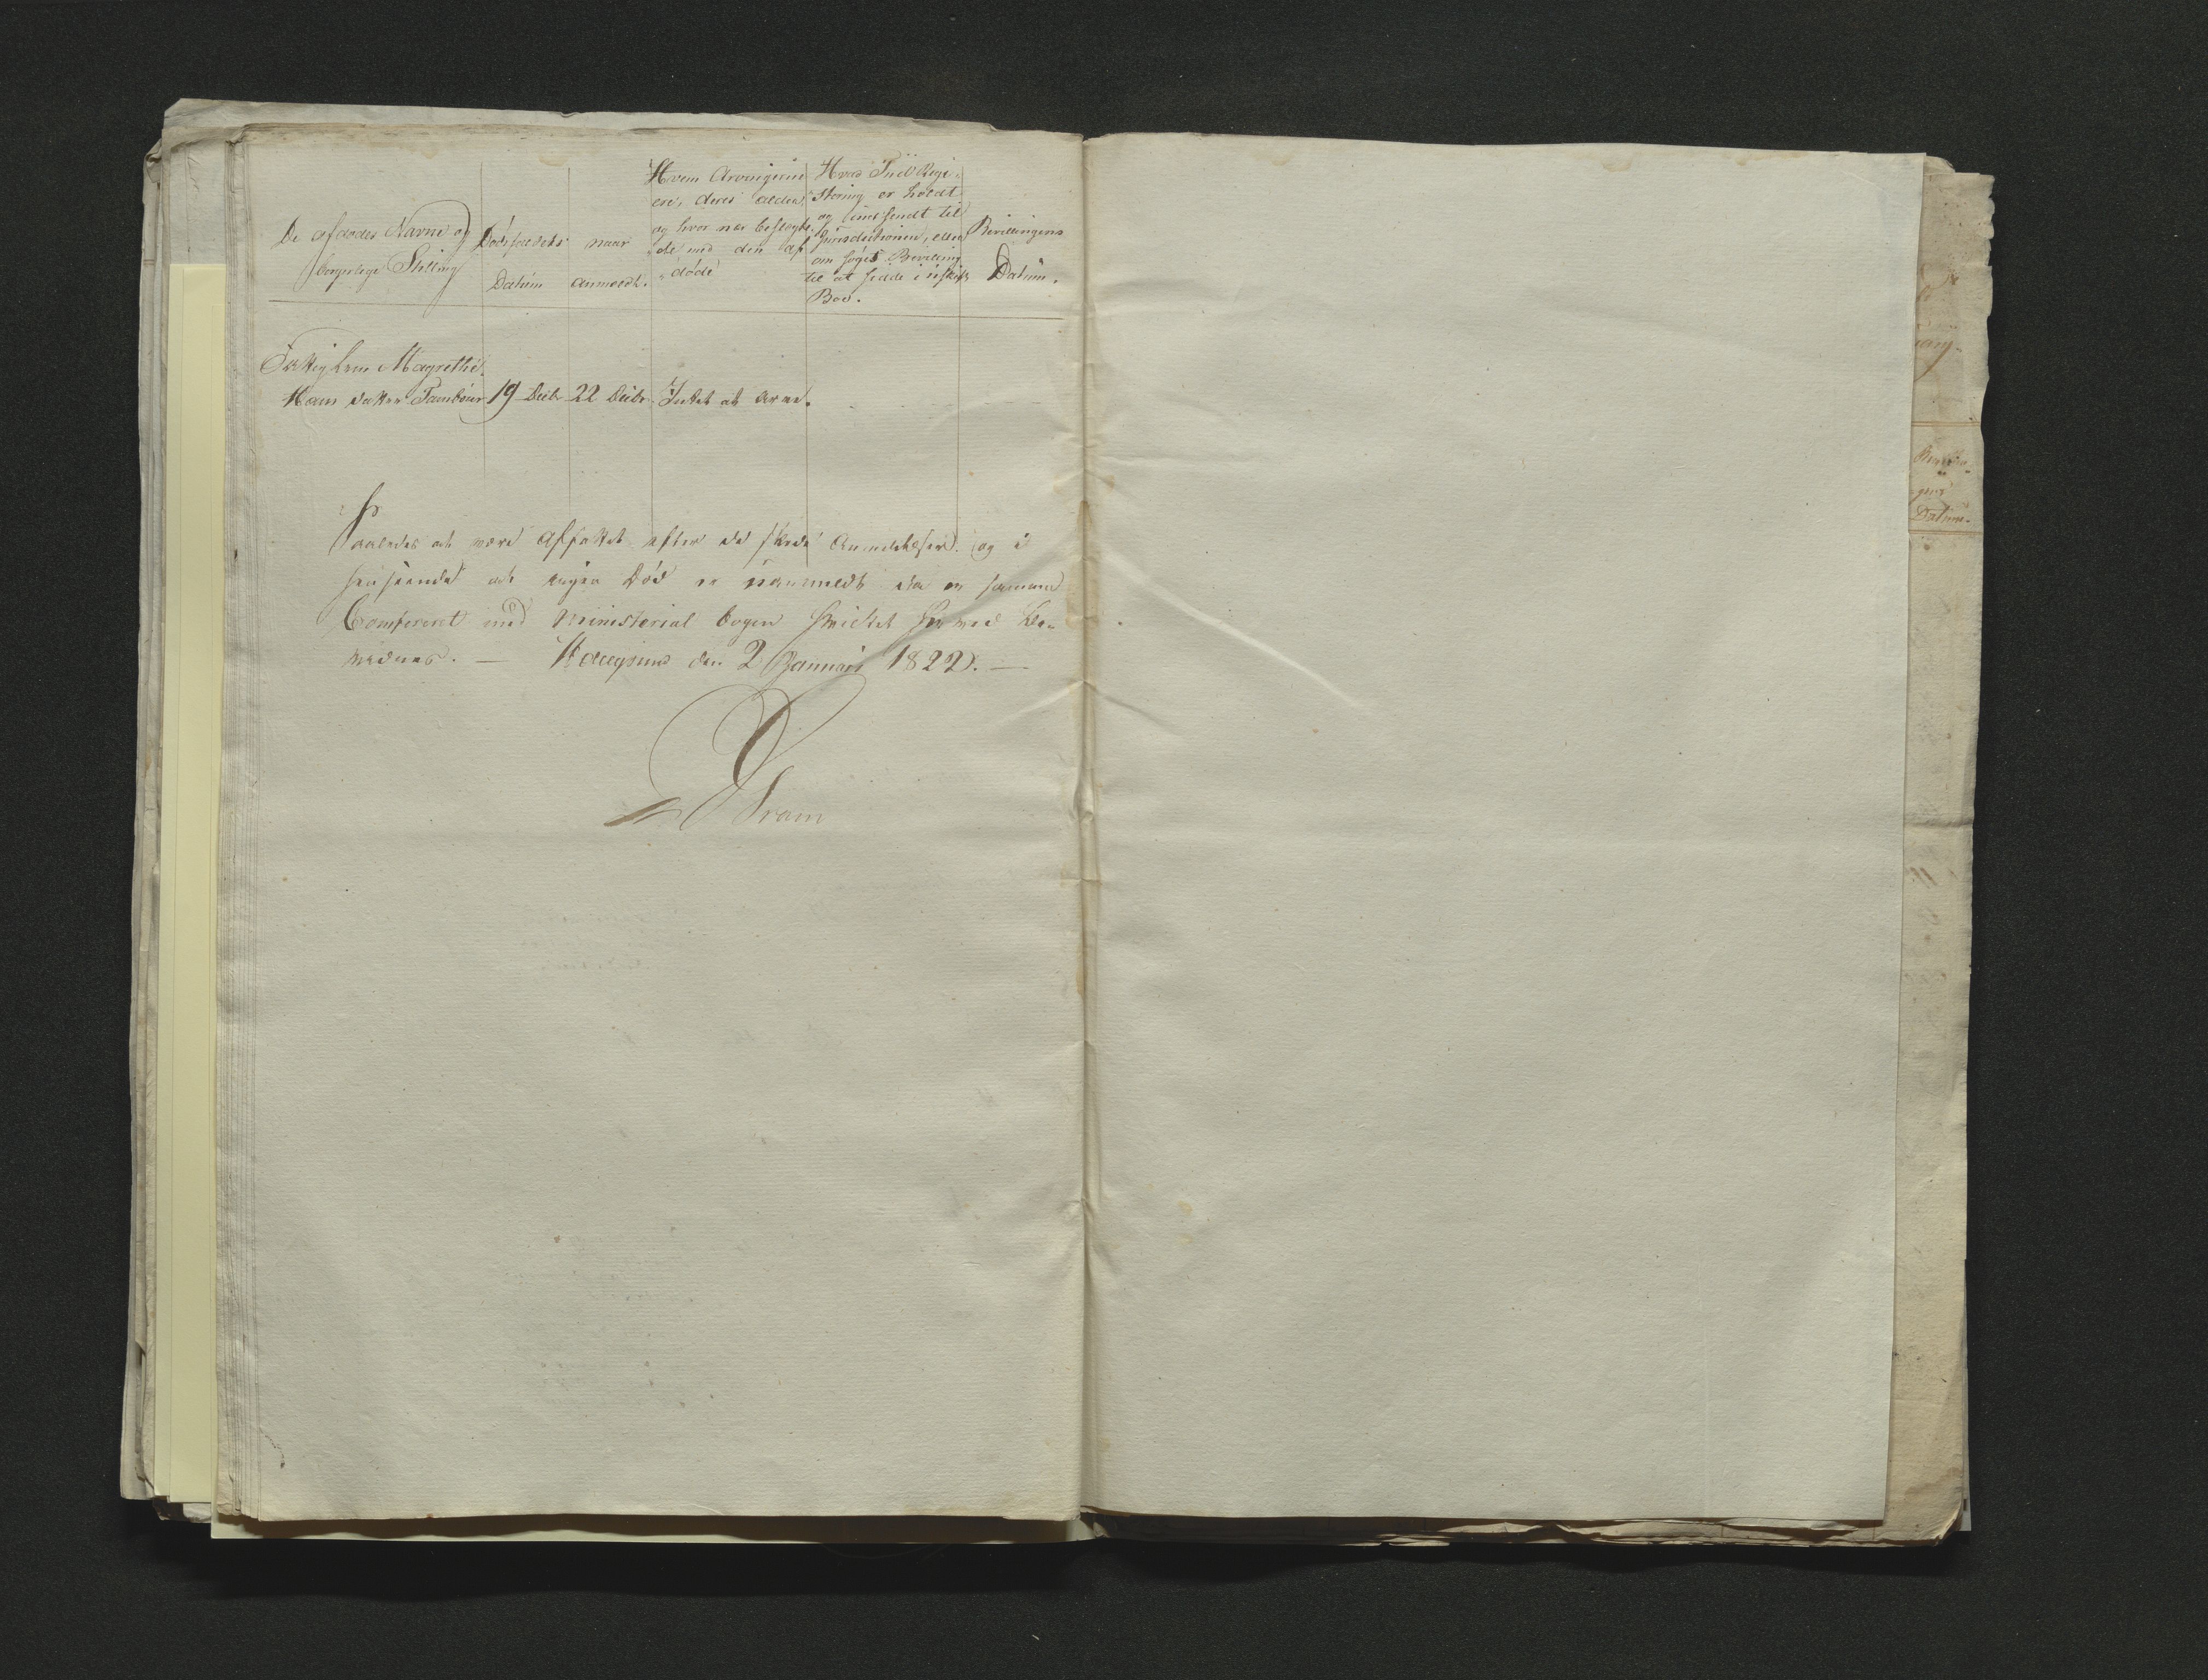 De afdødes Navne og
borgerlige Stilling
Dødsfaldets
Datum
naar
anmeldt.
Hvem Arvingerne
ere, deres alder,
og hvor nær beslægte-
de med den af-
døde
Hvad Tiid Regi-
strering er holdt
og indsendt til
Jurisdictionen, eller
om søgt Bevilling
til at sidde i uskift
Boe.
Bevillingens
Datum.
Fattiglem Magrethe
Hans datter Tambour 19 Decbr 22 Decbr Intet at arve.
Saaledes at være affattet efter de skede Anmeldelser og i
henseende at ingen Død er uanmeldt da er samme
Confereret med Ministerial bogen hvilket herved be-
vidnes. — den 2 Januari 1822. —
Bram
Datum.